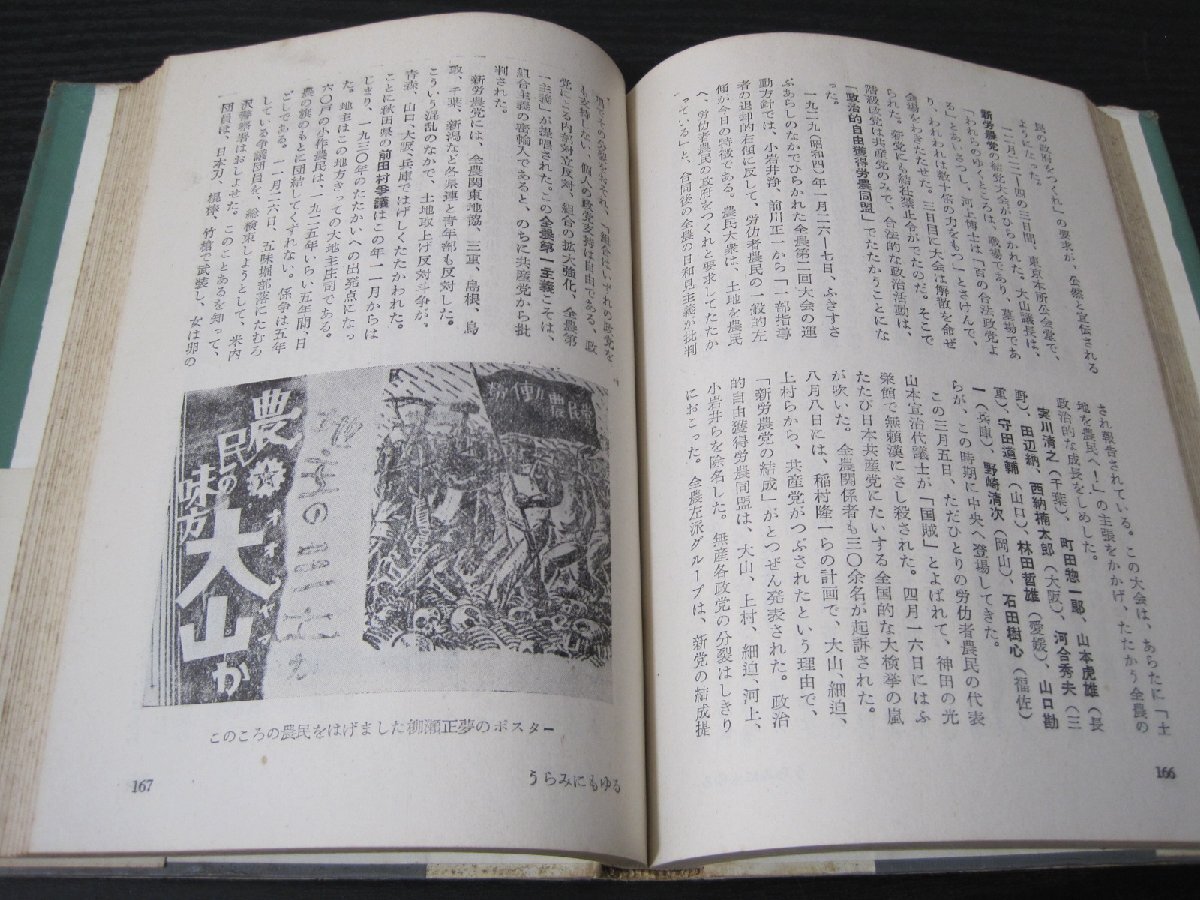 民の政府をつくれ」の要求が、公然と宣伝される
ようになった。
一二月二二―四の三日間、東京本所公会堂で、
新労農党の結党大会がひらかれた。大山議長は、
「われらのゆくところは、戦場であり、墓場であ
る」とあいさつし、河上博士は「百の合法政党よ
り、われわれは数十倍の力をもつ」とさけんで、
会場をわきたたせた。三日目に大会は解散を命ぜ
られた。新党にも結社禁止令がでたのだ。そこで
階級政党は共産党のみで、合法的な政治活動は、
「政治的自由獲得労農同盟」でたたかうことにな
った。
一九二九(昭和四)年一月二六―七日、ふきすさ
ぶあらしのなかでひらかれた全農第二回大会の運
動方針では、小岩井浄、前川正一から「一部指導
者の退却的右傾に反して、労仂者農民の一般的左
傾が今日の特徴である。農民大衆は、土地を農民
へ、労仂者農民の政府をつくれと要求してたたか
っている」と、合同後の全農の日和見主義が批判
され報告されている。この大会は、あらたに「土
地を農民へ!」の主張をかかげ、たたかう全農の
政治的な成長をしめした。
実川清之(千葉)、町田惣一郎、山本虎雄(長
野)、田辺納、西納楠太郎(大阪)、河合秀夫(三
重)、守田道輔(山口)、林田哲雄(愛媛)、山口勘
一(兵庫)、野崎清次(岡山)、石田樹心(福佐)
らが、この時期に中央へ登場してきた。
この三月五日、ただひとりの労仂者農民の代表
山本宣治代議士が「国賊」とよばれて、神田の光
栄館で無頼漢にさし殺された。四月一六日にはふ
たたび日本共産党にたいする全国的な大検挙の嵐
が吹いた。全農関係者も三〇余名が起訴された。
八月八日には、稲村隆一らの計画で、大山、細迫、
上村らから、共産党がつぶされたという理由で、
「新労農党の結成」がとつぜん発表された。政治
的自由獲得労農同盟は、大山、上村、細迫、河上、
小岩井らを除名した。無産各政党の分裂はしきり
におこった。全農左派グループは、新党の結成提
166
も支持しない、個人の政党支持は自由である、政
党による内部対立反対、組合の拡大強化、全農第
一主義」が提唱された。この全農第一主義こそは、
組合主義の密輸入であると、のちに共産党から批
判された。
新労農党には、全農関東地協、三重、島根、鳥
取、千葉、新潟など各県連と青年部も反対した。
こういう混乱のなかで、土地取上げ反対斗争が、
青森、山口、大阪、兵庫ではげしくたたかわれた。
ことに秋田県の前田村争議はこの年一一月からは
じまり、一九三〇年のたたかいへの出発点になっ
た。地主はこの地方きっての大地主庄司である。
六〇戸の小作農民は、一九二五年いらい五年間日
農の旗のもとに団結してくずれない。係争は五年
ごしである。一一月二六日、五味堀部落にたむろ
している争議団員を、総検束しようとして、米内
沢警察署はおしよせた。このことあるを知って、
団員は、日本刀、棍棒、竹槍で武装し、女は卵の
農民の
味方
大山か
このころの農民をはげました柳瀬正夢のポスター
うらみにもゆる
167